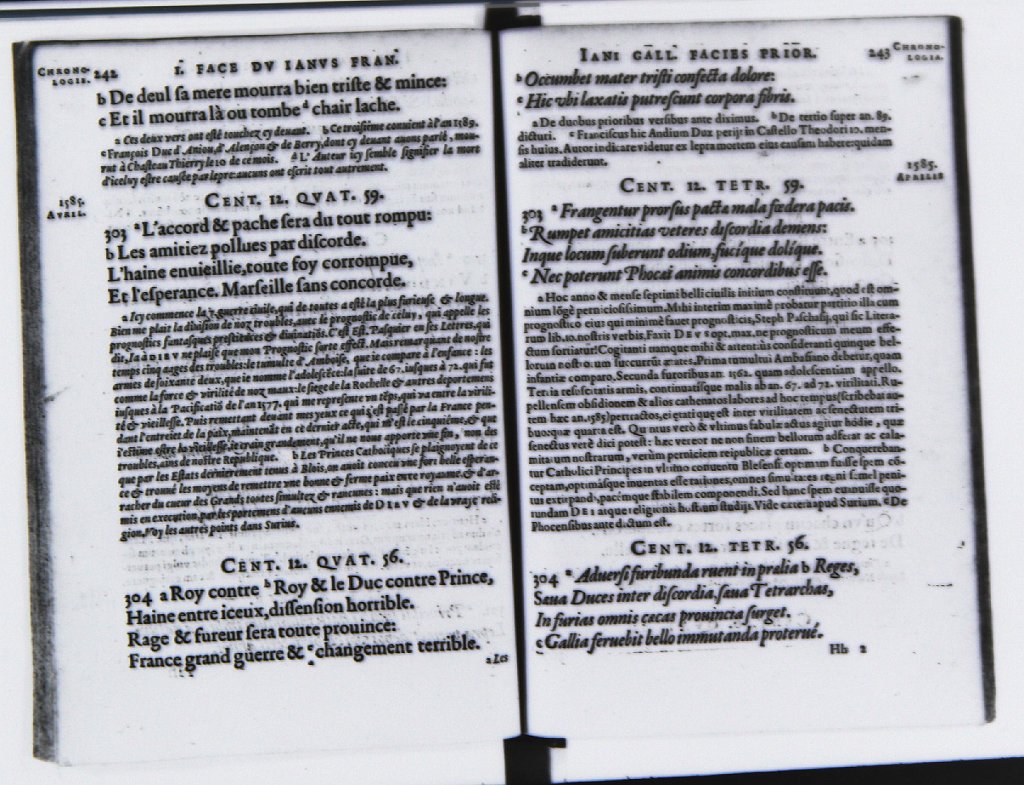 CHRONO-
LOGIE.
242
I. FACE DV IANVS FRAN.
b De deul sa mere mourra bien triste & mince:
c Et il mourra là ou tombe d chair lache.
a Ces deux vers ont esté touchez cy deuant. b Ce troisiéme conuient à l'an 1589.
c François Duc d'Aniou, d'Alençon & de Berry, dont cy deuant auons parlé, mou-
rut à Chasteau Thierry le 10 de ce mois. d L'Auteur icy semble signifier la mort
d'iceluy estre causée par lepre: aucuns ont escrit tout autrement.
1585.
AVRIL.
CENT. 12. QVAT. 59.
303 a L'accord & pache sera du tout rompu:
b Les amitiez pollues par discorde.
L'haine enuieillie, toute foy corrompue,
Et l'esperance. Marseille sans concorde.
a Icy commence la 7. guerre ciuile, qui de toutes a esté la plus furieuse & longue.
Bien me plait la diuision de noz troubles, auec le prognostic de celuy, qui appelle les
prognostics fantasques prestidices & diuinatiõs. C'est Est. Pasquier en ses Letres, qui
dit, Ia à DIEV ne plaise que mon Prognostic sorte effect. Mais remarquant de nostre
temps cinq aages des troubles: le tumulte d'Amboise, que ie compare à l'enfance: les
armes de soixante deux, que ie nomme l'adolescẽce: la suite de 67. iusques à 72. qui fut
comme la force & virilité de noz maux: le siege de la Rochelle & autres deportemens
iusques à la Pacificatiõ de l'an 1577, qui me represente vn tẽps, qui va entre la virili-
té & vieillesse. Puis remettant deuant mes yeux ce qui s'est passé par la France pen-
dant l'entreiet de la paix, maintenãt en ce dernier acte, qui m'est le cinquième, & que
i'estime estre ma vieillesse, ie crain grandement, qu'il ne nous apporte vne fin, non des
troubles, ains de nostre Republique. b Les Princes Catholiques se plaignoyent de ce
que par les Estats dernierement tenus à Blois, on auoit conceu vne fort belle esperan-
ce & trouué les moyens de remettre vne bonne & ferme paix entre royaume, & d'ar-
racher du cueur des Grands, toutes simultez & rancunes: mais que rien n'auoit esté
mis en execution, par les portemens d'aucuns ennemis de DIEV & de la vraye reli-
gion. Voy les autres points dans Surius.
CENT. 12. QVAT. 56.
304 a Roy contre b Roy & le Duc contre Prince,
Haine entre iceux, dissension horrible.
Rage & fureur sera toute prouince:
France grand guerre & c changement terrible.
a Les
IANI GALL. FACIES PRIOR.
243
CHRONO-
LOGIA.
b Occumbet mater tristi confecta dolore:
c Hic vbi laxatis putrescunt corpora fibris.
a De duobus prioribus versibus ante diximus. b De tertio super an. 89.
dicturi. c Franciscus hic Andium Dux perijt in Castello Theodori 10. men-
sis huius. Autor indicare videtur ex lepra mortem eius causam habere: quidam
aliter tradiderunt.
1585.
APRILIS
CENT. 12. TETR. 59.
303 a Frangentur prorsus pacta mala fœdera pacis.
b Rumpet amicitias veteres discordia demens:
Inque locum suberunt odium, fucíque dolíque.
c Nec poterunt Phocai animis concordibus esse.
a Hoc anno & mense septimi belli ciuilis initium constituunt, quod est om-
nium lõgè perniciosissimum. Mihi interim minimè probatur partitio illa cum
prognostico eius qui minimè fauet prognosticis, Steph Paschasij, qui sic Litera-
rum lib. 10. nostris verbis, Faxit DEVS opt. max. ne prognosticum meum effe-
ctum sortiatur! Cogitanti namque mihi & attentiùs consideranti quinque bel-
lorum nostrorum succurrũt ætates, Prima tumultui Ambosiano debetur, quam
infantiæ comparo. Secunda furoribus an. 1562. quam adolescentiam appello.
Tertia resuscitatis armis, continuatisque malis ab an. 67. ad 72. virilitati. Ru-
pellensem obsidionem & alios cathenatos labores ad hoc tempus (scribebat au-
tem hæc an. 1585) pertractos, ei ætati quæ est inter virilitatem ac senectutem tri-
buo, quæ quarta est. Quintus verò & vltimus fabulæ actus agitur hodie, quæ
senectus verè dici potest: hæc vereor ne non finem bellorum adferat ac cala-
mitatum nostrarum, verùm perniciem reipublicæ certam. b Conquereban-
tur Catholici Principes in vltimo conuentu Blesensi optimam fuisse spem cõ-
ceptam, optimásque inuentas esse rationes, omnes simultates regni semel peni-
tus extirpandi, pacémque stabilem componendi. Sed hanc spem euanuisse quo-
rundam DEI atque religionis hostium studijs. Vide cætera apud Surium. c De
Phocensibus ante dictum est.
CENT. 12. TETR. 56.
304 a Aduersi furibunda ruent in prælia b Reges,
Sæua Duces inter discordia, sæua Tetrarchas,
In furias omnis cæcas prouincia surget.
c Gallia feruebit bello immutanda proteruè.
Hh 2